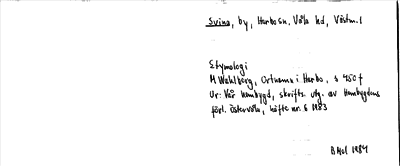 Svina, by, Harbo sn, Våla hd, Västm. l
Etymologi
M Wahlberg, Ortnamn i Harbo, s 450 f
Ur: Vår hembygd, skrifts. utg. av Hembygdens
förl. Östervåla, häfte nr. 6 1983
B Mel 1984